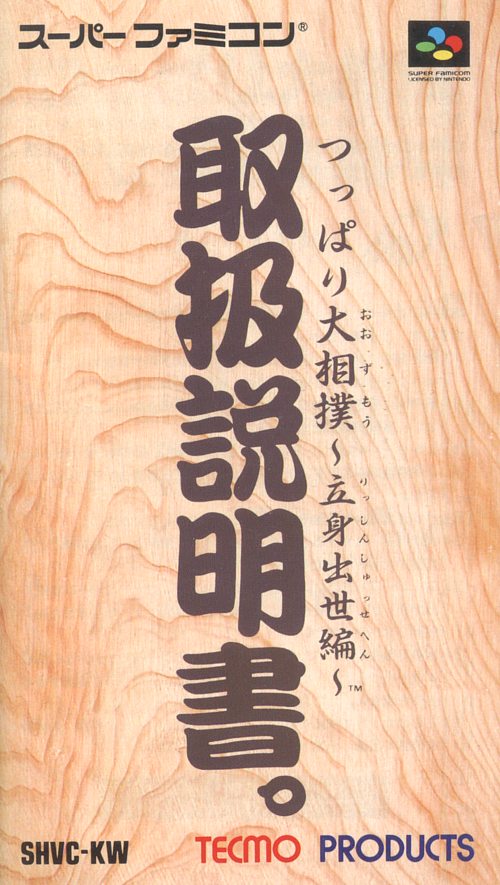 スーパーファミコン®
SUPER FAMICOM
LICENSED BY NINTENDO
つっぱり大相撲～立身出世編～™
おおずもう
りっしんしゅっせへん
取扱説明書。
SHVC-KW
TECMO PRODUCTS